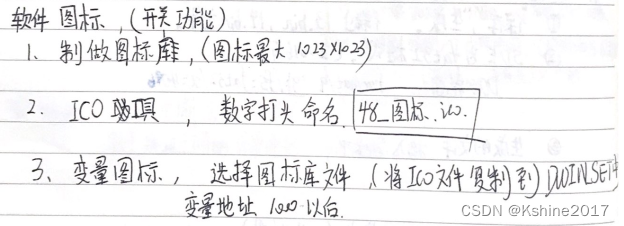 软件图标,(开关功能)
1、制做图标库,(图标最大 1023×1023)
2. ICO 助具 , 数字打头命名. 48_图标.ico.
3、变量图标, 选择图标库文件 (将ICO文件复制到) DWINSET中
变量地址 1000 以后.
CSDN @Kshine2017